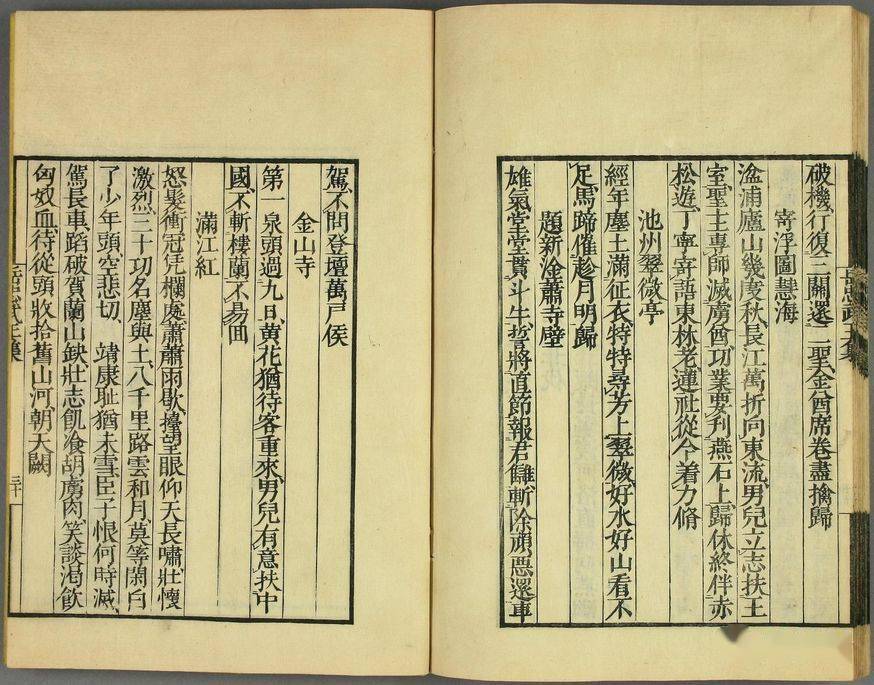 破機行復三關還二聖金酋席卷盡擒歸
寄浮圖慧海
湓浦廬山幾度秋長江萬折向東流男兒立志扶王
室聖主專師滅虜酋功業要刊燕石上歸休終伴赤
松遊丁寧寄語東林老蓮社從今着力脩
池州翠微亭
經年塵土滿征衣特特尋芳上翠微好水好山看不
足馬蹄催趁月明歸
題新淦蕭寺壁
雄氣堂堂貫斗牛誓將直節報君讎斬除頑惡還車
駕不問登壇萬戸侯
金山寺
第一泉頭過九日黄花猶待客重來男兒有意扶中
國不斬樓蘭不易回
滿江紅
怒髮衝冠凭欄處蕭蕭雨歇擡望眼仰天長嘯壯懷
激烈三十功名塵與土八千里路雲和月莫等閑白
了少年頭空悲切 靖康耻猶未雪臣子恨何時滅
駕長車踏破賀蘭山缺壯志飢飡胡虜肉笑談渴飲
匈奴血待從頭收拾舊山河朝天闕
岳忠武王集
三十